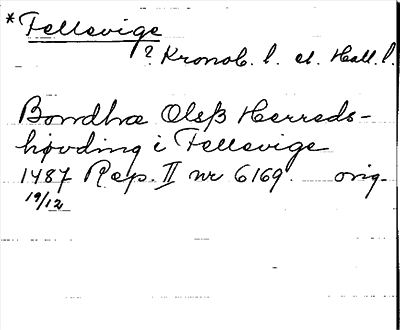 *Fellevige
? Kronob. l. el. Hall. l.
Bondhæ Olsß Herreds-
høvding i Fellevige
1487 Rep. II nr 6169. orig.
19/12